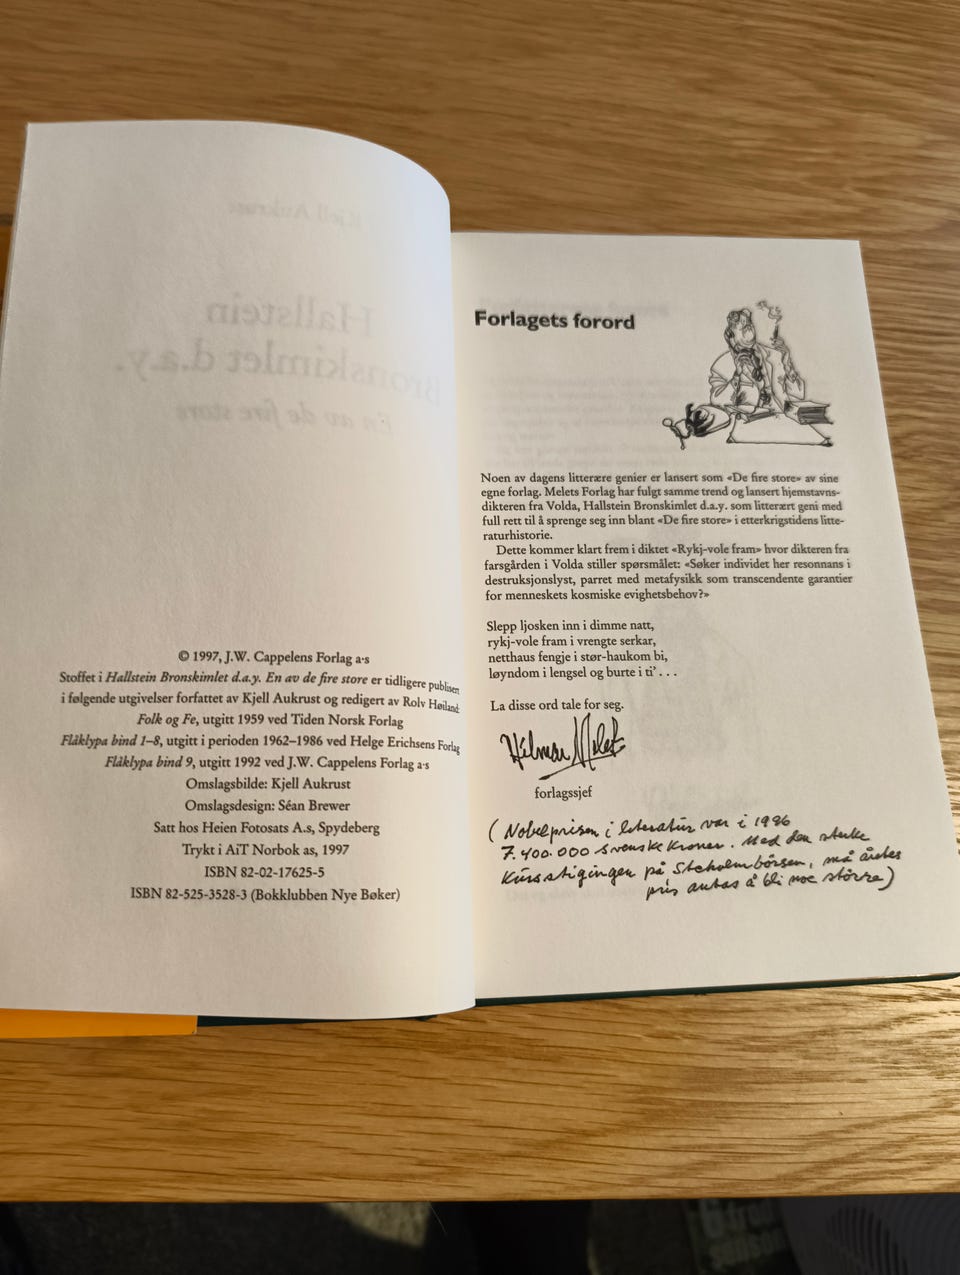 © 1997, J.W. Cappelens Forlag a·s
Stoffet i Hallstein Bronskimlet d.a.y. En av de fire store er tidligere publisert
i følgende utgivelser forfattet av Kjell Aukrust og redigert av Rolv Høiland:
Folk og Fe, utgitt 1959 ved Tiden Norsk Forlag
Flåklypa bind 1–8, utgitt i perioden 1962–1986 ved Helge Erichsens Forlag
Flåklypa bind 9, utgitt 1992 ved J.W. Cappelens Forlag a·s
Omslagsbilde: Kjell Aukrust
Omslagsdesign: Séan Brewer
Satt hos Heien Fotosats A.s, Spydeberg
Trykt i AiT Norbok as, 1997
ISBN 82-02-17625-5
ISBN 82-525-3528-3 (Bokklubben Nye Bøker)
Forlagets forord
Noen av dagens litterære genier er lansert som «De fire store» av sine
egne forlag. Melets Forlag har fulgt samme trend og lansert hjemstavns-
dikteren fra Volda, Hallstein Bronskimlet d.a.y. som litterært geni med
full rett til å sprenge seg inn blant «De fire store» i etterkrigstidens litte-
raturhistorie.
Dette kommer klart frem i diktet «Rykj-vole fram» hvor dikteren fra
farsgården i Volda stiller spørsmålet: «Søker individet her resonnans i
destruksjonslyst, parret med metafysikk som transcendente garantier
for menneskets kosmiske evighetsbehov?»
Slepp ljosken inn i dimme natt,
rykj-vole fram i vrengte serkar,
netthaus fengje i stør-haukom bi,
løyndom i lengsel og burte i ti' . . .
La disse ord tale for seg.
Hilmar Melet
forlagssjef
(Nobelprisen i literatur var i 1996
7.400.000 svenske kroner. Med den sterke
kursstigingen på Stockholmbörsen, må årets
pris antas å bli noe større)